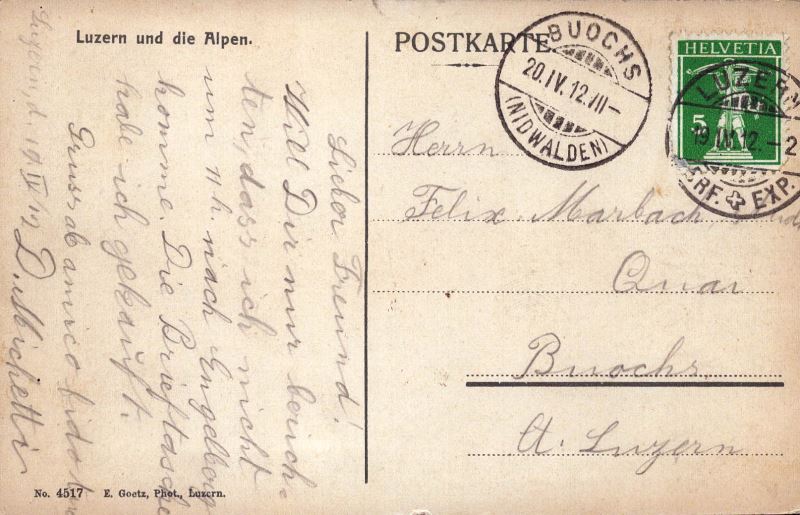 Luzern und die Alpen.
POSTKARTE.
BUOCHS
20.IV.12.III-
(NIDWALDEN)
HELVETIA
5
LUZERN
19.IV.12.-2
BRF. EXP.
Herrn
Felix Marbach,
Quai
Buochs
Ct. Luzern
Luzern, d. 19 IV 12
Lieber Freund!
Will Dir nur berich-
ten, dass ich nicht
um 11 h. nach Engelberg
komme. Die Brieftasche
habe ich gekauft.
Gruss ab amico fido
D. Michetti
No. 4517 E. Goetz, Phot., Luzern.